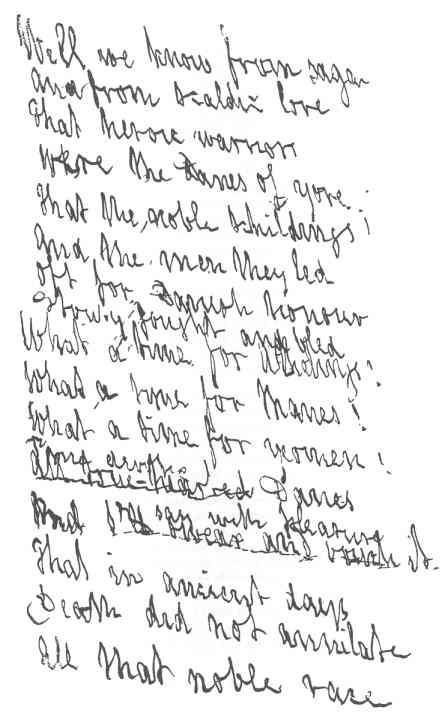 Well we know from sagas
and from scaldic lore
That heroic warriors
Were the Danes of yore.
That the noble Schildings!
And the men they led
Oft for Danish honour
Stoutly fought and bled
What a time for Vikings!
What a time for Manes!
What a time for yeomen!
All true-hearted Danes
And I'll say with
swear and vouch it.
That in ancient days
Death did not annilate
All that noble race